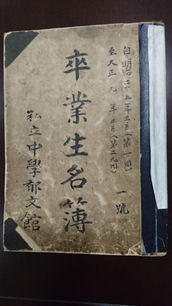 自明治二十五年三月(第一回)
至大正元年三月(第二九回)
一號
卒業生名簿
私立中學郁文館